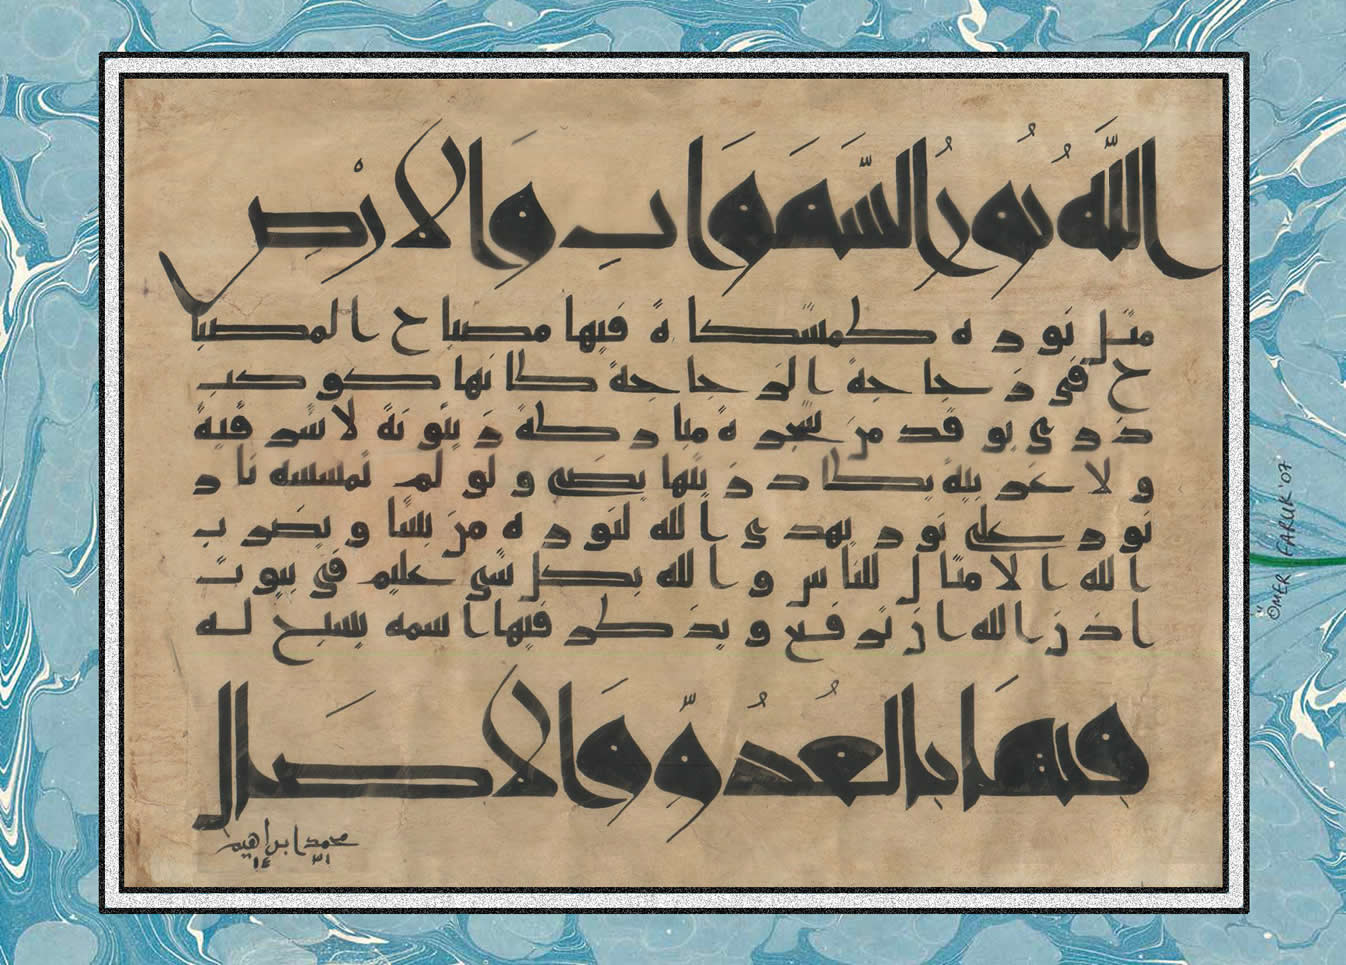 اللَّهُ نُورُ السَّمَوَاتِ وَالْأَرْضِ
مثل نوره كمشكاة فيها مصباح المصبا
ح في زجاجة الزجاجة كأنها كوكب
دري يوقد من شجرة مباركة زيتونة لا شرقية
ولا غربية يكاد زيتها يضيء ولو لم تمسسه نار
نور على نور يهدي الله لنوره من يشاء ويضرب
الله الأمثال للناس والله بكل شيء عليم في بيوت
أذن الله أن ترفع ويذكر فيها اسمه يسبح له
فِيهَا بِالْغُدُوِّ وَالْآصَالِ
محمد ابراهيم
ÖMER FARUK '07